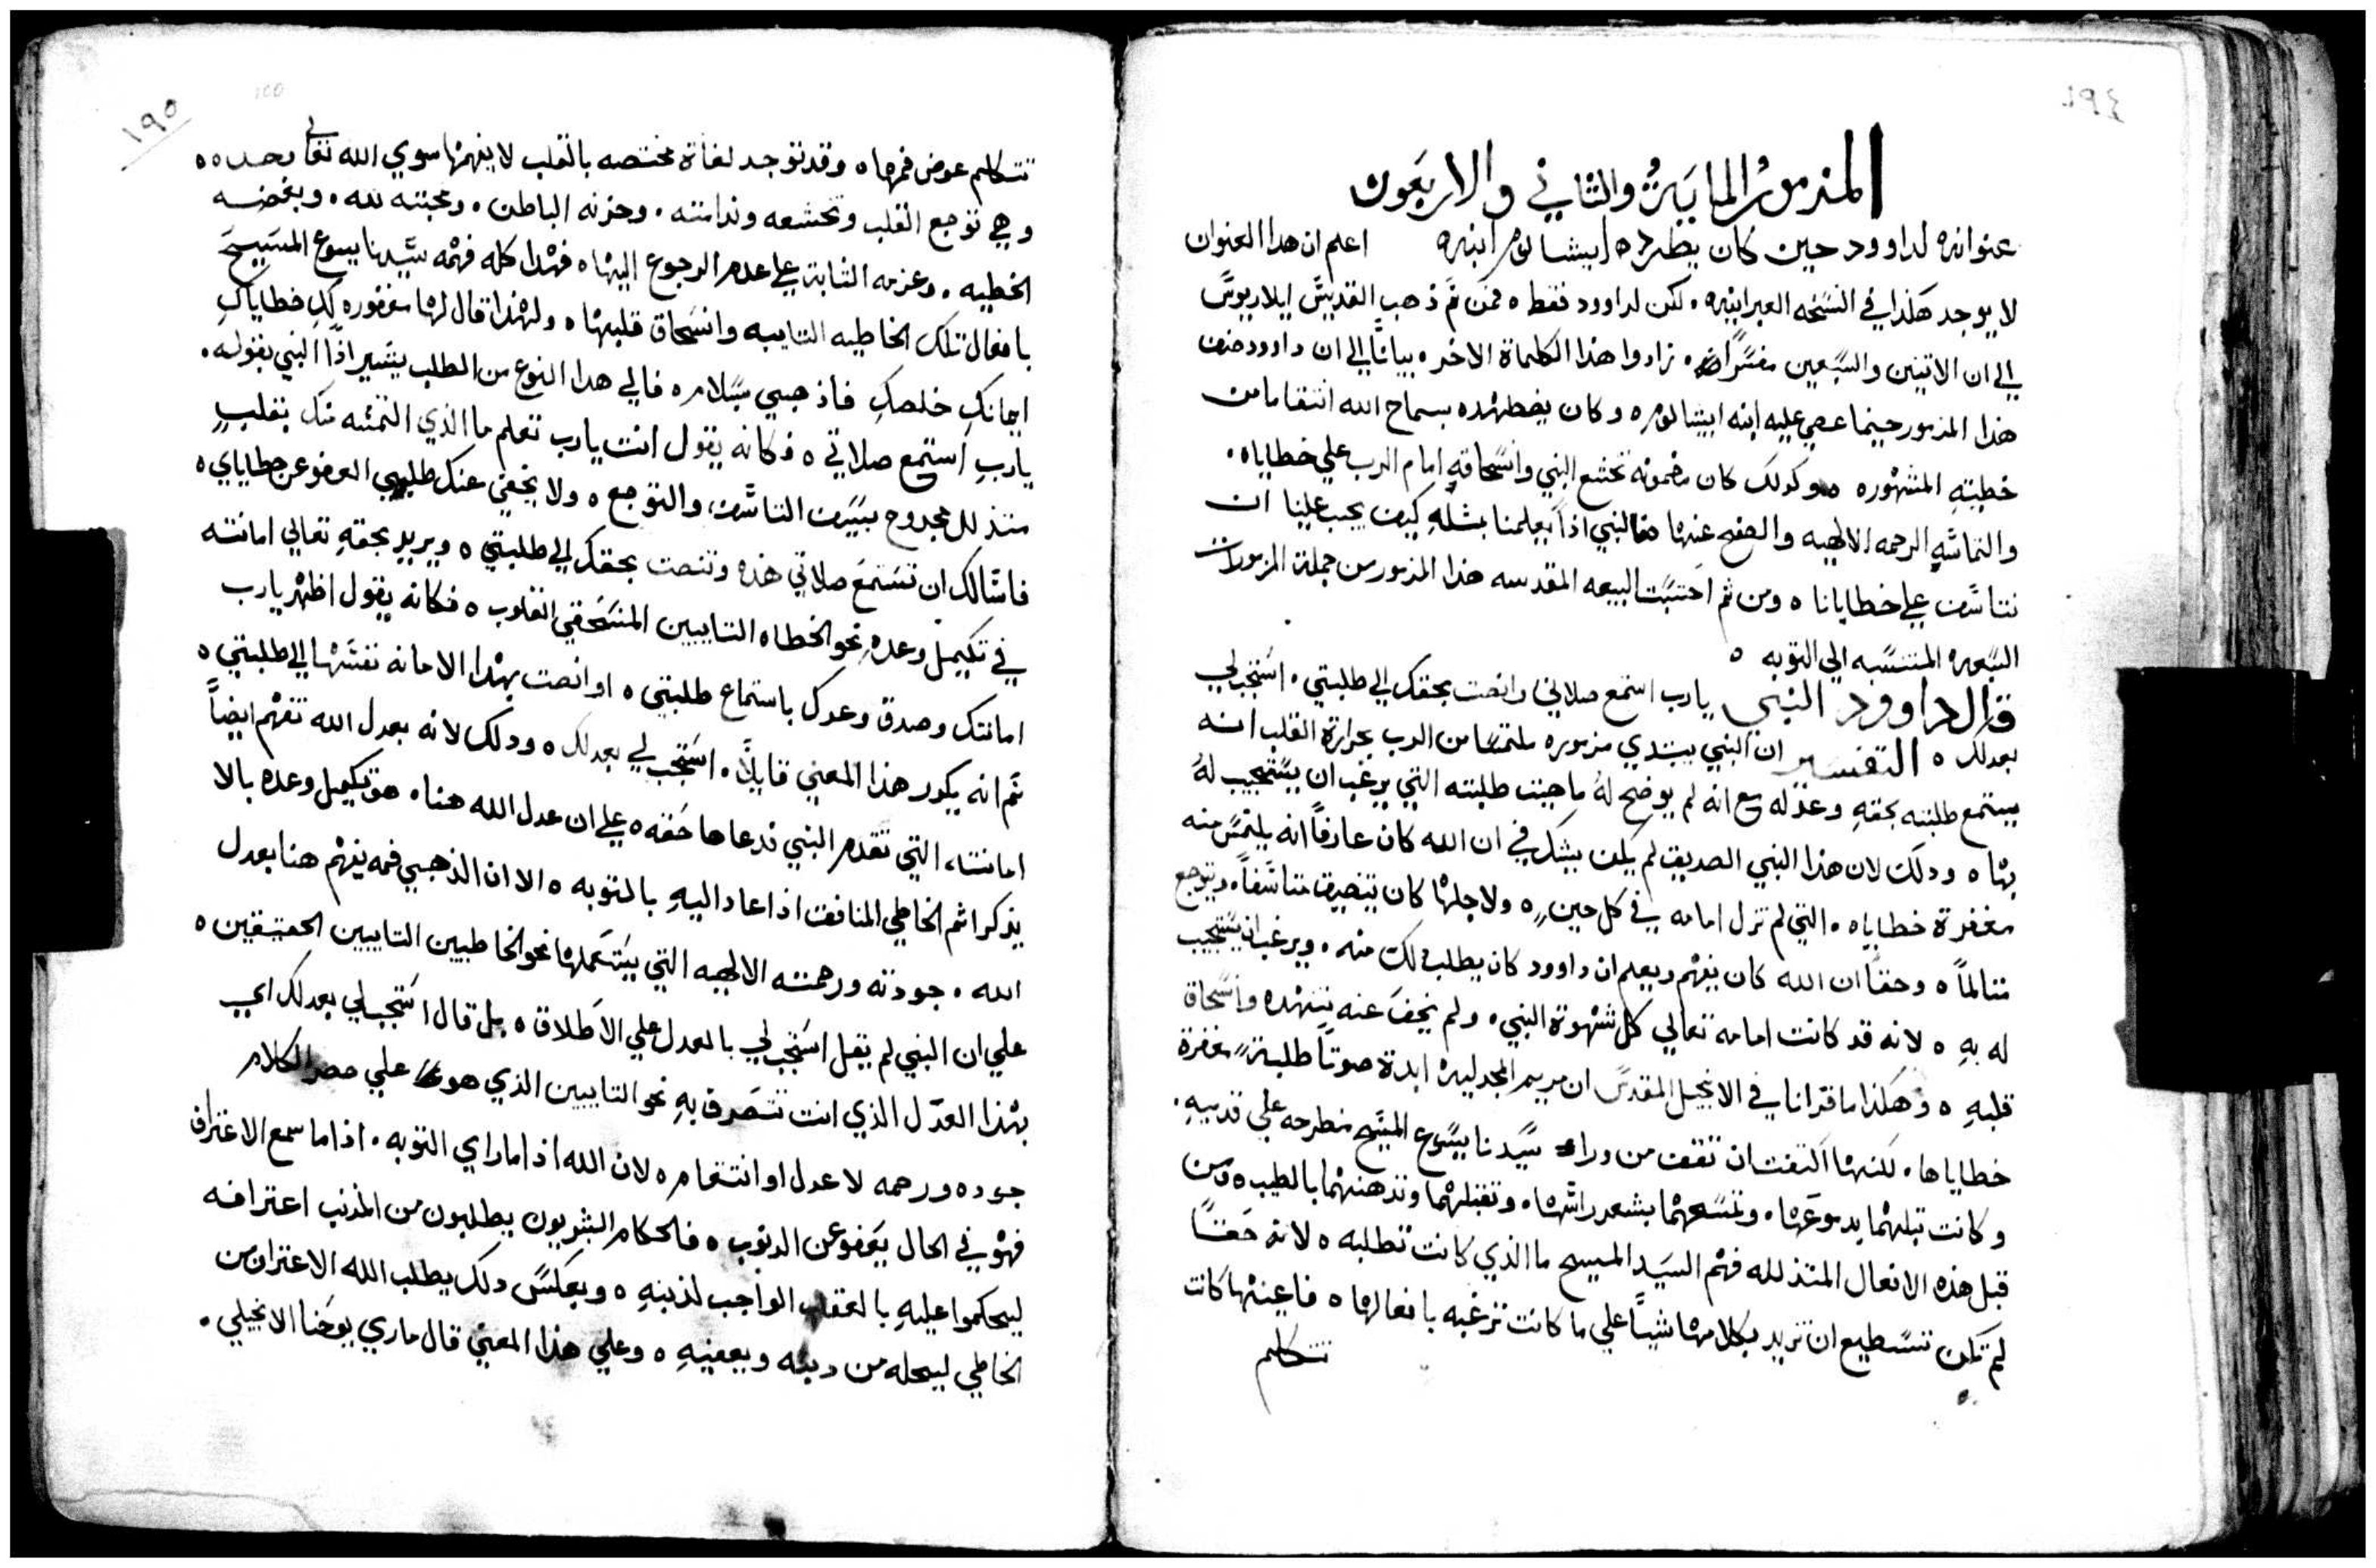 ١٩٤
المزمور المايه والثاني والاربعون
عنوانه لداوود حين كان يطرده ابيشالوم ابنه اعلم ان هدا العنوان
لا يوجد هكذا في النسخه العبرانيه. لكن لداوود فقط ه فمن ثم ذهب القديس ايلاريوس
الي ان الاتنين والسبعين مفسرًا زادوا هذا الكلماة الاخر. بيانًا الي ان داوود صنف
هذا المزمور حينما عصي عليه ابنه ابيشالوم ه وكان يضطهده بسماح الله انتقاما من
خطيته المشهوره ه وكدلك كان مضمونه تخشع النبي وانسحاقه امام الرب علي خطاياه.
والتماسه الرحمه الالهيه والصفح عنها فالنبي اذًا يعلمنا بمثله كيف يجب علينا ان
نتاسف علي خطايانا ه ومن ثم احتسبت البيعه المقدسه هذا المزمور من جملة المزمورات
السبعه المنتسبه الي التوبه ه
قال داوود النبي يارب استمع صلاتي وانصت بحقك الي طلبتي. استجب لي
بعدلك ه التفسير ان النبي يبتدي مزموره ملتمسًا من الرب بحرارة القلب انه
يستمع طلبته بحقهِ وعدله مع انه لم يوضح لهُ ما هيت طلبته التي يرغب ان يستجيب لهُ
بها ه ودلك لان هذا النبي الصديق لم يكن يشك في ان الله كان عارفًا انه يلتمس منه
مغفرة خطاياه. التي لم تزل امامه في كل حين ه ولاجلها كان يتضيق متاسفًا. ويتوجع
متالمًا ه وحقًا ان الله كان يفهم ويعلم ان داوود كان يطلب دلك منه. ويرغب ان يستجيب
له بهِ ه لانه قد كانت امامه تعالي كل شهوة النبي. ولم يخفَ عنه تنهده وانسحاق
قلبهِ ه وهكذا ما قرانا في الانجيل المقدس ان مريم المجدليه ابدة صوتًا طلبة مغفرة
خطاياها. لكنها اكتفت ان تقف من وراء سيدنا يسوع المسيح منطرحه علي قدميهِ.
وكانت تبلهما بدموعها. وتمسحهما بشعر راسها. وتقبلهما وتدهنهما بالطيب ه ومن
قبل هذه الافعال المتذلله فهم السيد المسيح ما الذي كانت تطلبه ه لانه حقًا
لم تكن تستطيع ان تزيد بكلامها شيًا علي ما كانت ترغبه بافعالها ه فاعينها كانت
تتكلم
١٩٥
تتكلم عوض فمها ه وقد توجد لغاة مختصه بالقلب لا يفهمها سوي الله تعالي وحده ه
وهي توجع القلب وتخشعه وندامته. وحزنه الباطن. ومحبته لله. وبغضه
الخطيه. وعزمه الثابت علي عدم الرجوع اليها ه فهذا كله فهمه سيدنا يسوع المسيح
بافعال تلك الخاطيه التايبه وانسحاق قلبها ه ولهذا قال لها مغفوره لكِ خطاياكِ
ايمانكِ خلصكِ فاذهبي بسلام ه فالي هدا النوع من الطلب يشير اذًا النبي بقوله.
ياربِ استمع صلاتي ه فكانه يقول انت يارب تعلم ما الذي التمسه منك بقلبٍ
متذلل مجروح بسيف التاسف والتوجع ه ولا يخفي عنك طلبي العفو عن خطاياي ه
فاسالك ان تستمع صلاتي هذه وتنصت بحقك الي طلبتي ه ويريد بحقهِ تعالي امانته
في تكميل وعدهِ نحو الخطاه التايبين المنسحقي القلوب ه فكانه يقول اظهر يارب
امانتك وصدق وعدك باستماع طلبتي ه او انصت بهدا الامانه نفسها الي طلبتي ه
ثم انه يكرر هذا المعني قايلًا. استجب لي بعدلك ه ودلك لانه بعدل الله تفهم ايضًا
امانته التي تقدم النبي فدعاها حقه ه علي ان عدل الله هنا. هو تكميل وعده بالا
يذكر اثم الخاطي المنافق اذا عاد اليهِ بالتوبه ه الا ان الذهبي فمه يفهم هنا بعدل
الله. جودته ورحمته الالهيه التي يستعملها نحو الخاطيين التايبين الحقيقيين ه
علي ان النبي لم يقل استجب لي بالعدل علي الاطلاق ه بل قال استجب لي بعدلك اي
بهذا العدل الذي انت تتصرف بهِ نحو التايبين الذي هو علي حصر الكلام
جوده ورحمه لا عدل او انتقام ه لان الله اذا ما راي التوبه. اذا ما سمع الاعتراف
فهو في الحال يعفو عن الدنوب ه فالحكام البشريون يطلبون من المذنب اعترافه
ليحكموا عليهِ بالعقاب الواجب لذنبهِ ه وبعكس دلك يطلب الله الاعتراف من
الخاطي ليحله من دينه ويعفيهِ ه وعلي هذا المعني قال ماري يوحنا الانجيلي.